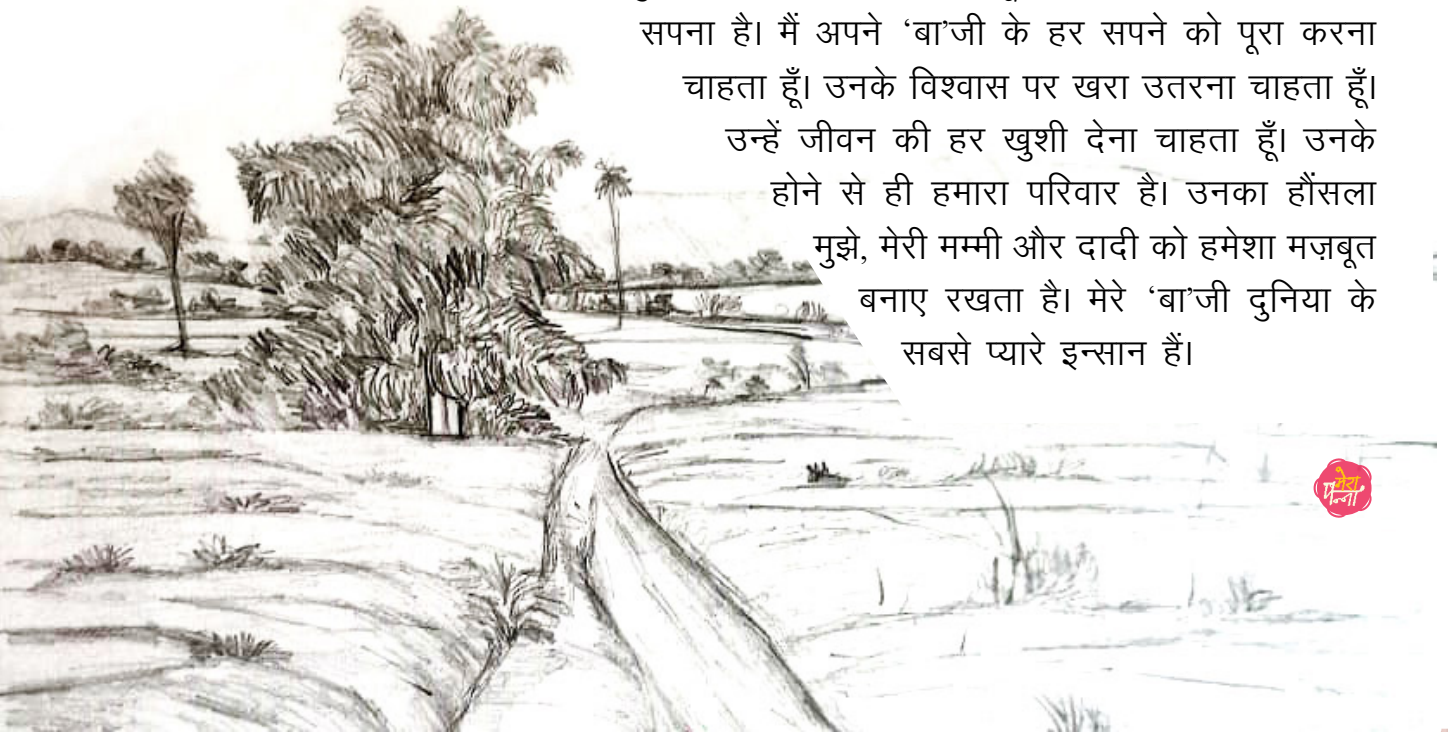 सपना है। मैं अपने ‘बा’जी के हर सपने को पूरा करना
चाहता हूँ। उनके विश्वास पर खरा उतरना चाहता हूँ।
उन्हें जीवन की हर खुशी देना चाहता हूँ। उनके
होने से ही हमारा परिवार है। उनका हौंसला
मुझे, मेरी मम्मी और दादी को हमेशा मज़बूत
बनाए रखता है। मेरे ‘बा’जी दुनिया के
सबसे प्यारे इन्सान हैं।
मेरा
पन्ना